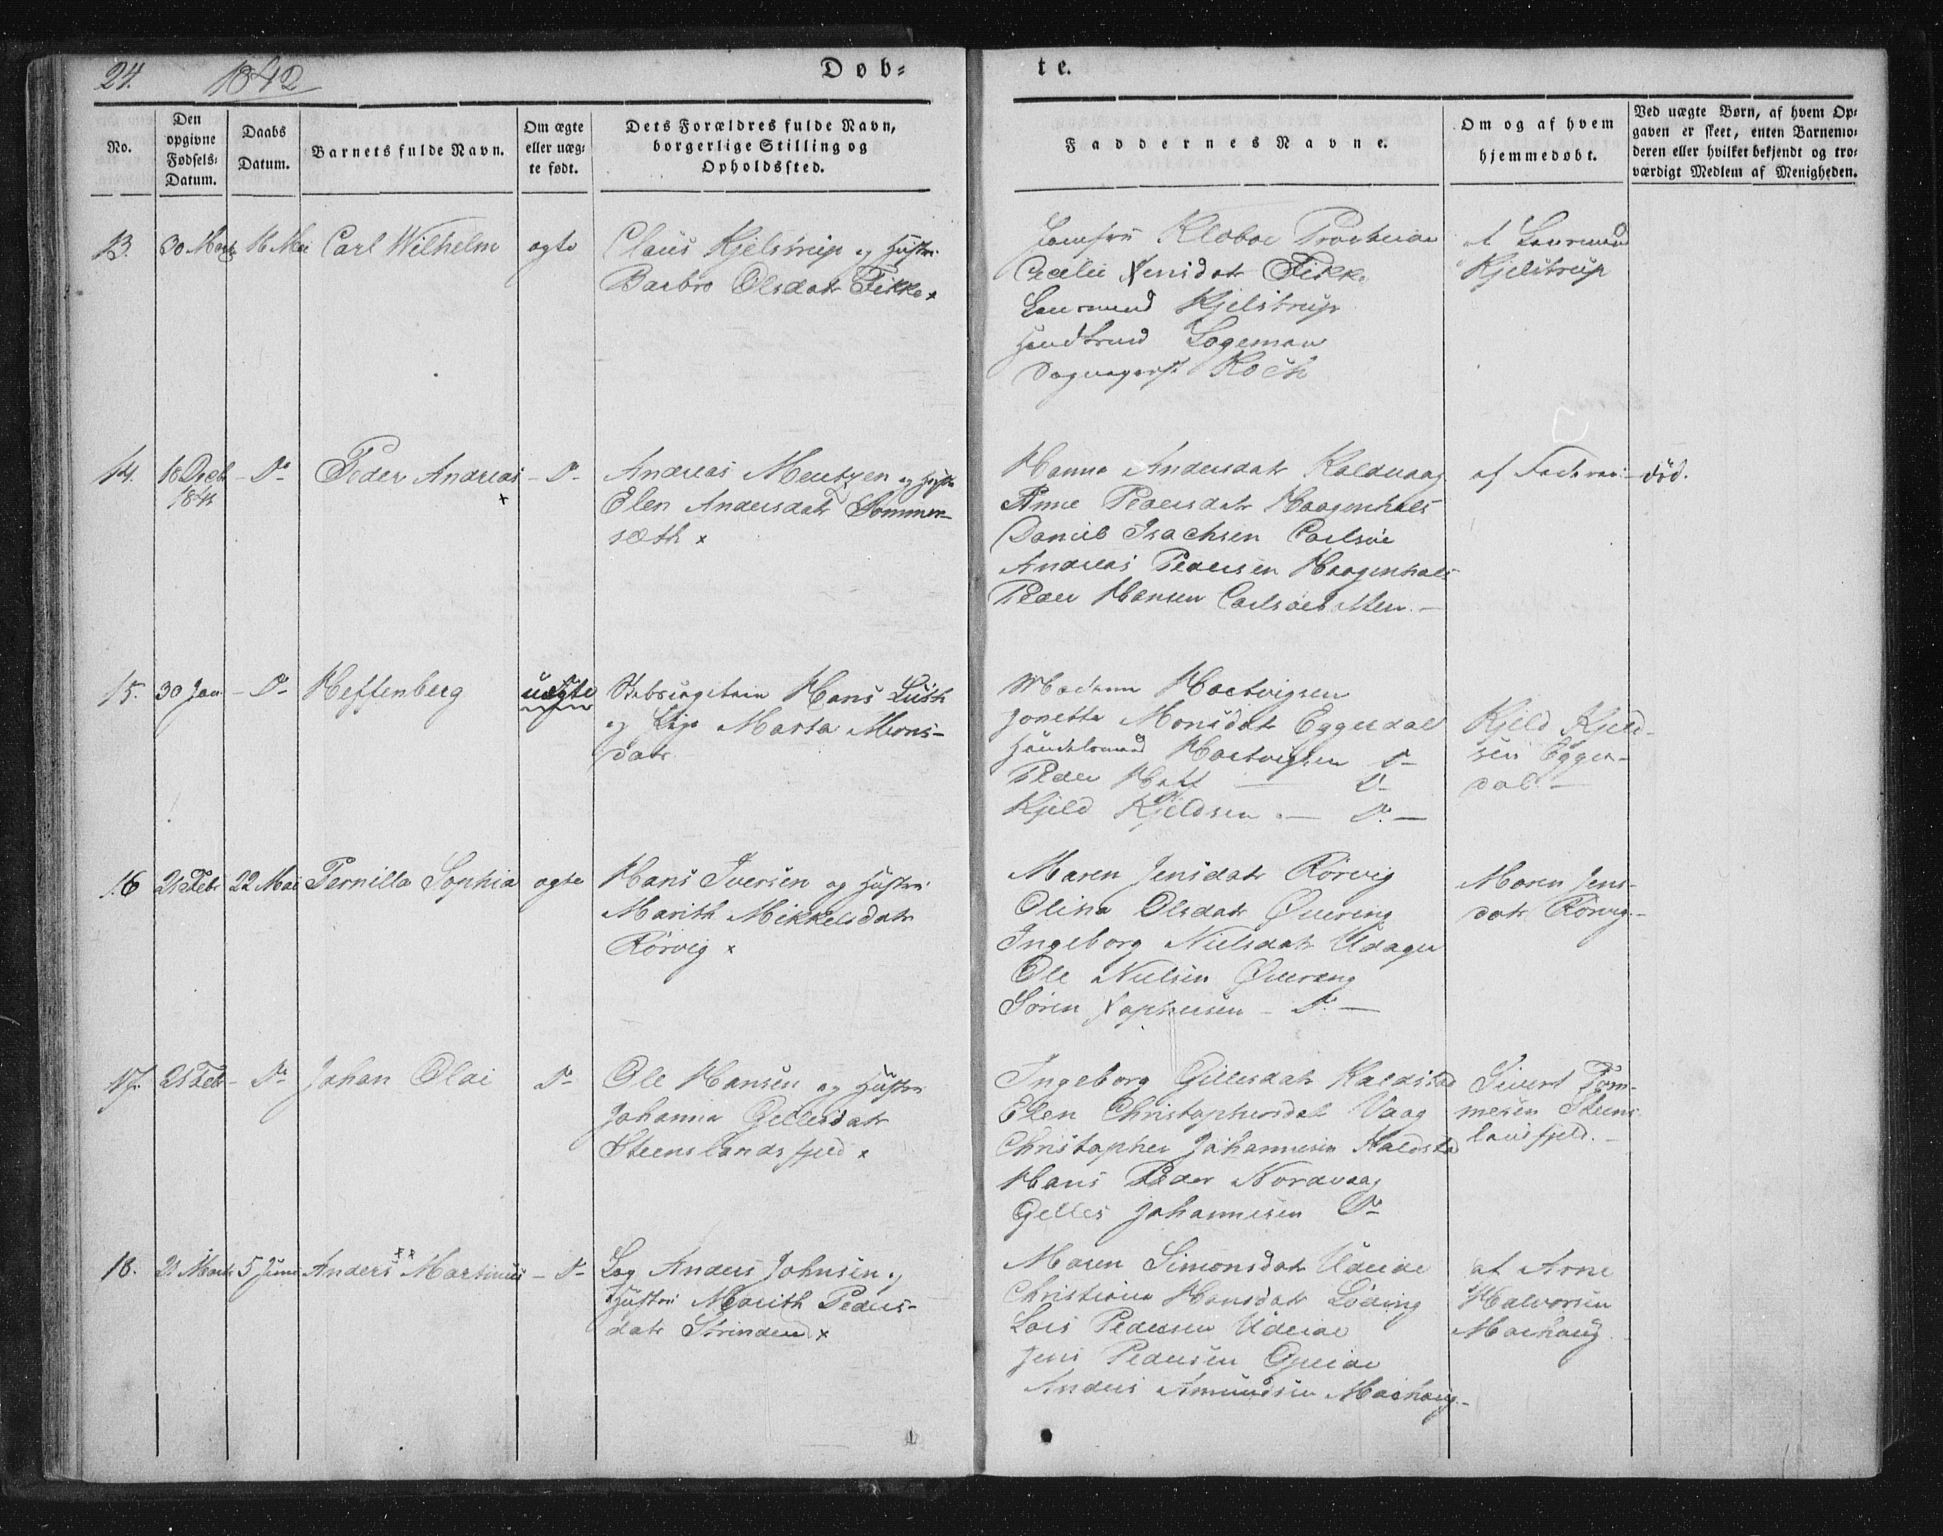 24. 1842 Døb- te.
No.
Den opgivne Fødsels-Datum.
Daabs Datum.
Barnets fulde Navn.
Om ægte eller uægte født.
Dets Forældres fulde Navn, borgerlige Stilling og Opholdssted.
Faddernes Navne.
Om og af hvem hjemmedøbt.
Ved uægte Børn, af hvem Opgaven er skeet, enten Barnemoderen eller hvilket bekjendt og troværdigt Medlem af Menigheden.
13. 30 Marts 16 Mai Carl Wilhelm ægte
Claus Kjelstrup og Hustru
Barbro Olsdatr Fikke x
Jomfru Kloboe
Fikke
Kjelstrup
Logeman
Koch
af
Kjelstrup
14. 18 Decb 1841 - Do - Peder Andreas x - Do -
Andreas Mentzen og Hustru
Elen Andersdatr Sommer-
sæth x
Hanna Andersdatr Kaldvaag
Anne Pedersdatr Haagenhals
Daniel Isachsen Carlsøe
Andreas Pedersen Haagenhals
Peder Hansen
af Faderen - død.
15. 30 Jan - Do - Heffenberg uægte
Hans Lusth
og Pige Marta Mons-
datr
Madame Hartvigsen
Jonetta Monsdatr Eggesdal
Handelsmand Hartvigsen Do
Peder Do
Kjeld Kjeldsen - Do -
Kjeld Kjeld-
sen Egges-
dal. -
16 21 Feb 22 Mai Pernilla Sophia ægte
Hans Iversen og Hustru
Marith Mikkelsdatr
Rørvig x
Maren Jensdatr Rørvig
Olina Olsdatr Øvereng
Ingeborg Nielsdatr
Ole Nielsen Øvereng
Søren - Do -
Maren Jens-
datr Rørvig -
17. 21 Feb - Do - Johan Olai Do -
Ole Hansen og Hustru
Johanna Gellesdatr
Steenslandsfjeld x
Ingeborg Gillesdatr Kaldstad
Elen Christophersdat Vaag
Christopher Johannesen Kaldstad
Hans Peder Nordvaag
Gelles Johannesen Do
Sivert Tom-
mesen Steens
landsfjeld. -
18. 21 Marts 5 Juni Anders Martinus - Do -
Anders Johnsen og
Hustru Marith Peders-
datr Strinden x
Maren Simonsdatr
Christiana Hansdatr Løding
Lars Pedersen
Jens Pedersen
Anders Amundsen Marhaug -
af Arne
Halvorsen
Marhaug.